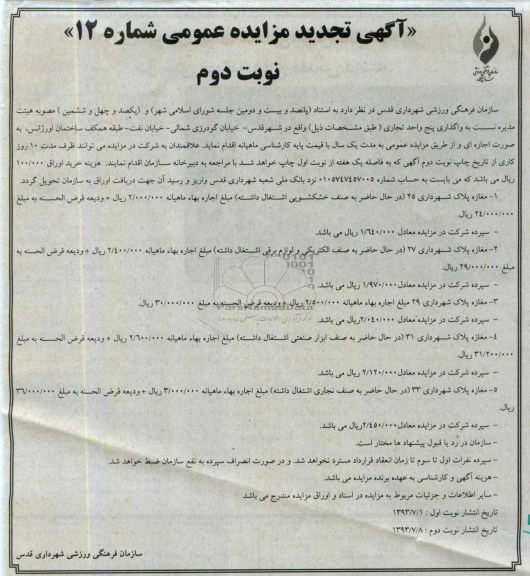 «آگهی تجدید مزایده عمومی شماره ۱۲»
نوبت دوم
سازمان فرهنگی ورزشی شهرداری قدس در نظر دارد به استناد (پانصد و بیست و دومین جلسه شورای اسلامی شهر) و (یکصد و چهل و ششمین) مصوبه هیئت
مدیره نسبت به واگذاری پنج واحد تجاری (طبق مشخصات ذیل) واقع در شهرقدس- خیابان گودرزی شمالی- خیابان نفت- طبقه همکف ساختمان اورژانس، به
صورت اجاره ای و از طریق مزایده عمومی به مدت یک سال با قیمت پایه کارشناسی ماهیانه اقدام نماید. علاقمندان به شرکت در مزایده می توانند ظرف مدت ۱۰ روز
کاری از تاریخ چاپ نوبت دوم آگهی که به فاصله یک هفته از نوبت اول چاپ خواهد شد با مراجعه به دبیرخانه سازمان اقدام نمایند. هزینه خرید اوراق ۱۰۰/۰۰۰
ریال می باشد که می بایست به حساب شماره ۰۱۰۵۷۴۷۴۵۷۰۰۵ نزد بانک ملی شعبه شهرداری قدس واریز و رسید آن جهت دریافت اوراق به سازمان تحویل گردد.
۱- مغازه پلاک شهرداری ۲۵ (در حال حاضر به صنف خشکشویی اشتغال داشته) مبلغ اجاره بهاء ماهیانه ۲/۰۰۰/۰۰۰ ریال + ودیعه قرض الحسنه به مبلغ
۲۴/۰۰۰/۰۰۰ ریال.
- سپرده شرکت در مزایده معادل ۱/۶۴۰/۰۰۰ ریال می باشد.
۲- مغازه پلاک شهرداری ۲۷ (در حال حاضر به صنف الکتریکی و لوازم برقی اشتغال داشته) مبلغ اجاره بهاء ماهیانه ۲/۴۰۰/۰۰۰ ریال + ودیعه قرض الحسنه به
مبلغ ۲۹/۰۰۰/۰۰۰ ریال.
- سپرده شرکت در مزایده معادل ۱/۹۷۰/۰۰۰ ریال می باشد.
۳- مغازه پلاک شهرداری ۲۹ مبلغ اجاره بهاء ماهیانه ۲/۵۰۰/۰۰۰ ریال + ودیعه قرض الحسنه به مبلغ ۳۰/۰۰۰/۰۰۰ ریال.
- سپرده شرکت در مزایده معادل ۲/۰۴۰/۰۰۰ ریال می باشد.
۴- مغازه پلاک شهرداری ۳۱ (در حال حاضر به صنف ابزار صنعتی اشتغال داشته) مبلغ اجاره بهاء ماهیانه ۲/۶۰۰/۰۰۰ ریال + ودیعه قرض الحسنه به مبلغ
۳۱/۲۰۰/۰۰۰ ریال.
- سپرده شرکت در مزایده معادل ۲/۱۲۰/۰۰۰ ریال می باشد.
۵- مغازه پلاک شهرداری ۳۳ (در حال حاضر به صنف نجاری اشتغال داشته) مبلغ اجاره بهاء ماهیانه ۳/۰۰۰/۰۰۰ ریال + ودیعه قرض الحسنه به مبلغ ۳۶/۰۰۰/۰۰۰
ریال.
- سپرده شرکت در مزایده معادل ۲/۴۵۰/۰۰۰ ریال می باشد.
- سازمان در رد یا قبول پیشنهاد ها مختار است.
- سپرده نفرات اول تا سوم تا زمان انعقاد قرارداد مسترد نخواهد شد. و در صورت انصراف سپرده به نفع سازمان ضبط خواهد شد.
- هزینه آگهی و کارشناسی به عهده برنده مزایده می باشد.
- سایر اطلاعات و جزئیات مربوط به مزایده در اسناد و اوراق مزایده مندرج می باشد
تاریخ انتشار نوبت اول : ۱۳۹۳/۷/۱
تاریخ انتشار نوبت دوم : ۱۳۹۳/۷/۸
سازمان فرهنگی ورزشی شهرداری قدس